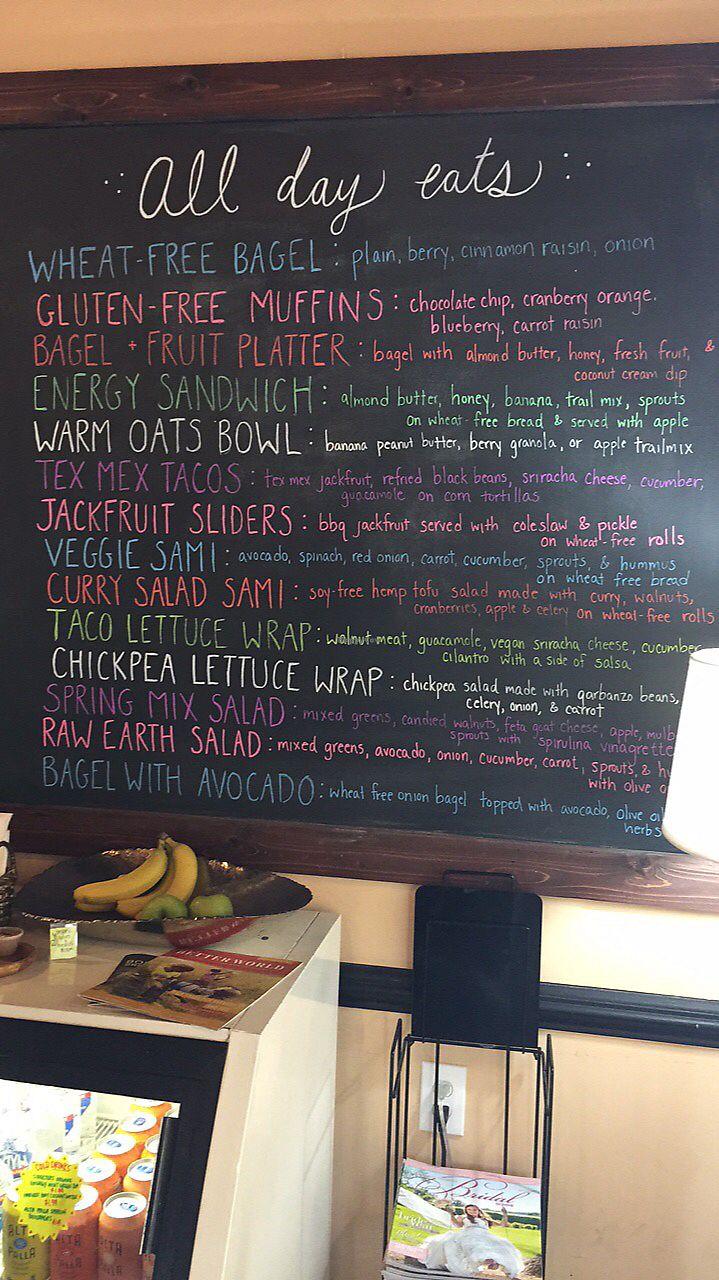 all day eats
WHEAT-FREE BAGEL: plain, berry, cinnamon raisin, onion
GLUTEN-FREE MUFFINS: chocolate chip, cranberry orange.
blueberry, carrot raisin
BAGEL + FRUIT PLATTER: bagel with almond butter, honey, fresh fruit, &
coconut cream dip
ENERGY SANDWICH: almond butter, honey, banana, trail mix, sprouts
on wheat-free bread & served with apple
WARM OATS BOWL: banana peanut butter, berry granola, or apple trailmix
TEX MEX TACOS: tex mex jackfruit, refried black beans, sriracha cheese, cucumber,
guacamole on corn tortillas
JACKFRUIT SLIDERS: bbq jackfruit served with coleslaw & pickle
on wheat-free rolls
VEGGIE SAMI: avocado, spinach, red onion, carrot, cucumber, sprouts, & hummus
on wheat free bread
CURRY SALAD SAMI: soy-free hemp tofu salad made with curry, walnuts,
cranberries, apple & celery on wheat-free rolls
TACO LETTUCE WRAP: walnut meat, guacamole, vegan sriracha cheese, cucumber
cilantro with a side of salsa
CHICKPEA LETTUCE WRAP: chickpea salad made with garbanzo beans,
celery, onion, & carrot
SPRING MIX SALAD: mixed greens, candied walnuts, feta goat cheese, apple, mulb
sprouts with spirulina vinagrette
RAW EARTH SALAD: mixed greens, avocado, onion, cucumber, carrot, sprouts, & hu
with olive o
BAGEL WITH AVOCADO: wheat free onion bagel topped with avocado, olive oil
herbs
BETTER WORLD
COLD DRINKS
ALTA
PALLA
ALTA
PALLA
ALTA
Bridal